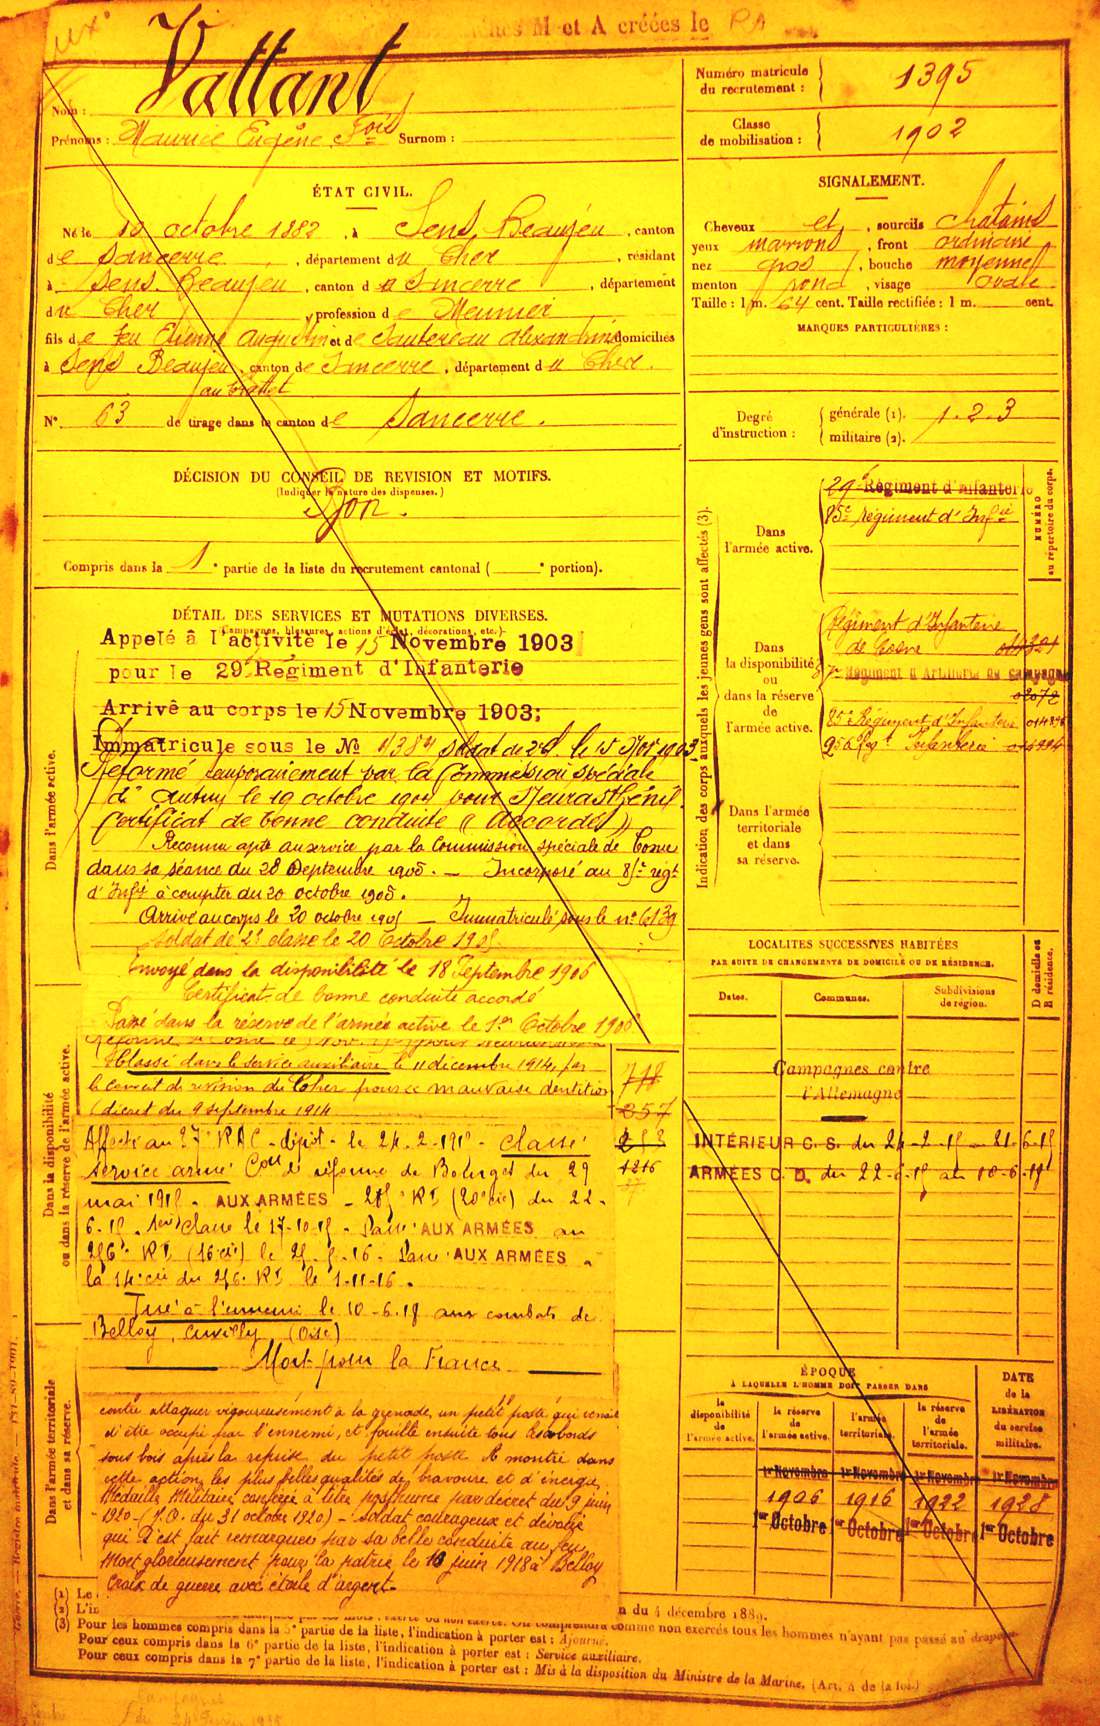 ches M et A créées le
Vattant
Nom :
Prénoms : Maurice Eugène Fois Surnom :
Numéro matricule du recrutement : 1395
Classe de mobilisation : 1902
ÉTAT CIVIL.
Né le 10 octobre 1882, à Sens Beaujeu, canton
de Sancerre, département du Cher, résidant
à Sens Beaujeu, canton de Sancerre, département
du Cher, profession de Meunier
fils de feu Etienne Augustin et de Sautereau Alexandrine domiciliés
à Sens Beaujeu, canton de Sancerre, département du Cher.
N° 63 de tirage dans le canton de Sancerre.
SIGNALEMENT.
Cheveux et, sourcils chatains
yeux marrons, front ordinaire
nez gros, bouche moyenne
menton rond, visage ovale
Taille : 1 m. 64 cent. Taille rectifiée : 1 m. cent.
MARQUES PARTICULIÈRES :
Degré d'instruction : générale (1). 1.2.3
militaire (2).
DÉCISION DU CONSEIL DE REVISION ET MOTIFS.
(Indiquer la nature des dispenses.)
Bon.
Compris dans la 1e partie de la liste du recrutement cantonal ( e portion).
DÉTAIL DES SERVICES ET MUTATIONS DIVERSES.
(Campagnes, blessures, actions d'éclat, décorations, etc.)
Appelé à l'activité le 15 Novembre 1903
pour le 29e Régiment d'Infanterie
Arrivé au corps le 15 Novembre 1903;
Immatriculé sous le No soldat de 2e cl. le 15 Nov 1903
Réformé temporairement par la Commission spéciale
d' Autun le 19 octobre 1904 pour Neurasthénie
Certificat de bonne conduite " Accordé "
Reconnu apte au service par la Commission spéciale de Cosne
dans sa séance du 28 Septembre 1905. — Incorporé au 85e régt
d'Infie à compter du 20 octobre 1905.
Arrivé au corps le 20 octobre 1905 — Immatriculé sous le n° 6139
soldat de 2e classe le 20 Octobre 1905.
Envoyé dans la disponibilité le 18 Septembre 1906
Certificat de bonne conduite accordé
Passé dans la réserve de l'armée active le 1er Octobre 1906
Classé dans le service auxiliaire le 11 décembre 1914, par
le Conseil de révision du Cher pour mauvaise dentition
(décret du 9 septembre 1914
Affecté au 37e RAC - dépôt - le 24-2-1915 - classé
service armé Con de réforme de Bourges du 29
mai 1915. AUX ARMÉES - 285e RI (20e cie) du 22-
6-15. 1ère classe le 17-10-15 - Passé AUX ARMÉES au
256e RI (16 cie) le 25-5-16. Passé AUX ARMÉES à
la 14e cie du 256e RI le 1-11-16.
Tué à l'ennemi le 10-6-18 aux combats de
Belloy, Cuvilly (Oise)
Mort pour la France
contre attaquer vigoureusement à la grenade, un petit poste qui venait
d'être occupé par l'ennemi, et fouille ensuite tous les abords
sous bois après la reprise du petit poste. A montré dans
cette action les plus belles qualités de bravoure et d'énergie.
Médaille Militaire conférée à titre posthume par décret du 9 juin
1920 - (J.O. du 31 octobre 1920) - Soldat courageux et dévoué
qui s'est fait remarquer par sa belle conduite au feu.
Mort glorieusement pour la patrie le 10 juin 1918 à Belloy
Croix de guerre avec étoile d'argent.
Dans l'armée active.
Dans la disponibilité ou dans la réserve de l'armée active.
Dans l'armée territoriale et dans sa réserve.
Indication des corps auxquels les jeunes gens sont affectés (3).
NUMÉRO au répertoire du corps.
Dans l'armée active.
29e Régiment d'Infanterie
85e régiment d'Infie
Dans la disponibilité ou dans la réserve de l'armée active.
Régiment d'Infanterie
de Cosne
Régiment d'Artillerie de campagne
02072
85e Régiment d'Infanterie
Dans l'armée territoriale et dans sa réserve.
LOCALITÉS SUCCESSIVES HABITÉES
PAR SUITE DE CHANGEMENTS DE DOMICILE OU DE RÉSIDENCE.
Dates.
Communes.
Subdivisions de région.
D domicile ou R résidence.
Campagnes contre
l'Allemagne
INTÉRIEUR C. S. du 24-2-15 - 21-6-15
ARMÉES C. D. du 22-6-15 au 10-6-18
1216
ÉPOQUE
À LAQUELLE L'HOMME DOIT PASSER DANS
la disponibilité de l'armée active.
la réserve de l'armée active.
l'armée territoriale.
la réserve de l'armée territoriale.
DATE de la LIBÉRATION du service militaire.
1er Novembre 1er Novembre 1er Novembre 1er Novembre
1906 1916 1922 1928
1er Octobre 1er Octobre 1er Octobre 1er Octobre
(1) Le
(2) L'in
n du 4 décembre 1889.
(3) Pour les hommes compris dans la 5e partie de la liste, l'indication à porter est : Ajourné.
Pour ceux compris dans la 6e partie de la liste, l'indication à porter est : Service auxiliaire.
Pour ceux compris dans la 7e partie de la liste, l'indication à porter est : Mis à la disposition du Ministre de la Marine. (Art. 4 de la loi.)